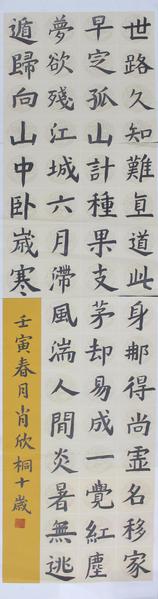 世路久知難直道此身那得尚虛名移家
早定孤山計種果支茅却易成一覺紅塵
夢欲殘江城六月滯風湍人間炎暑無逃
遁歸向山中卧歲寒
壬寅春月肖欣桐十歲